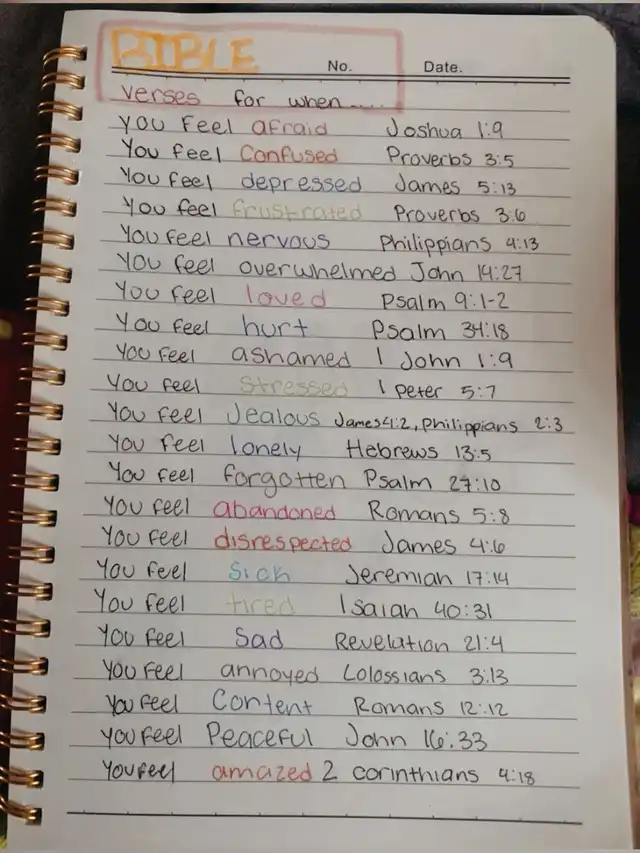 BIBLE
No. Date.
verses for when.....
you feel afraid Joshua 1:9
You feel Confused Proverbs 3:5
You feel depressed James 5:13
You feel frustrated Proverbs 3:6
You feel nervous Philippians 4:13
You feel overwhelmed John 14:27
You feel loved Psalm 9:1-2
You feel hurt Psalm 34:18
You feel ashamed 1 John 1:9
You feel stressed 1 peter 5:7
You feel Jealous James4:2, philippians 2:3
You feel lonely Hebrews 13:5
You feel forgotten Psalm 27:10
You feel abandoned Romans 5:8
You feel disrespected James 4:6
You feel Sick Jeremiah 17:14
You feel tired Isaiah 40:31
You feel Sad Revelation 21:4
You feel annoyed Colossians 3:13
You feel Content Romans 12:12
You feel Peaceful John 16:33
You feel amazed 2 corinthians 4:18